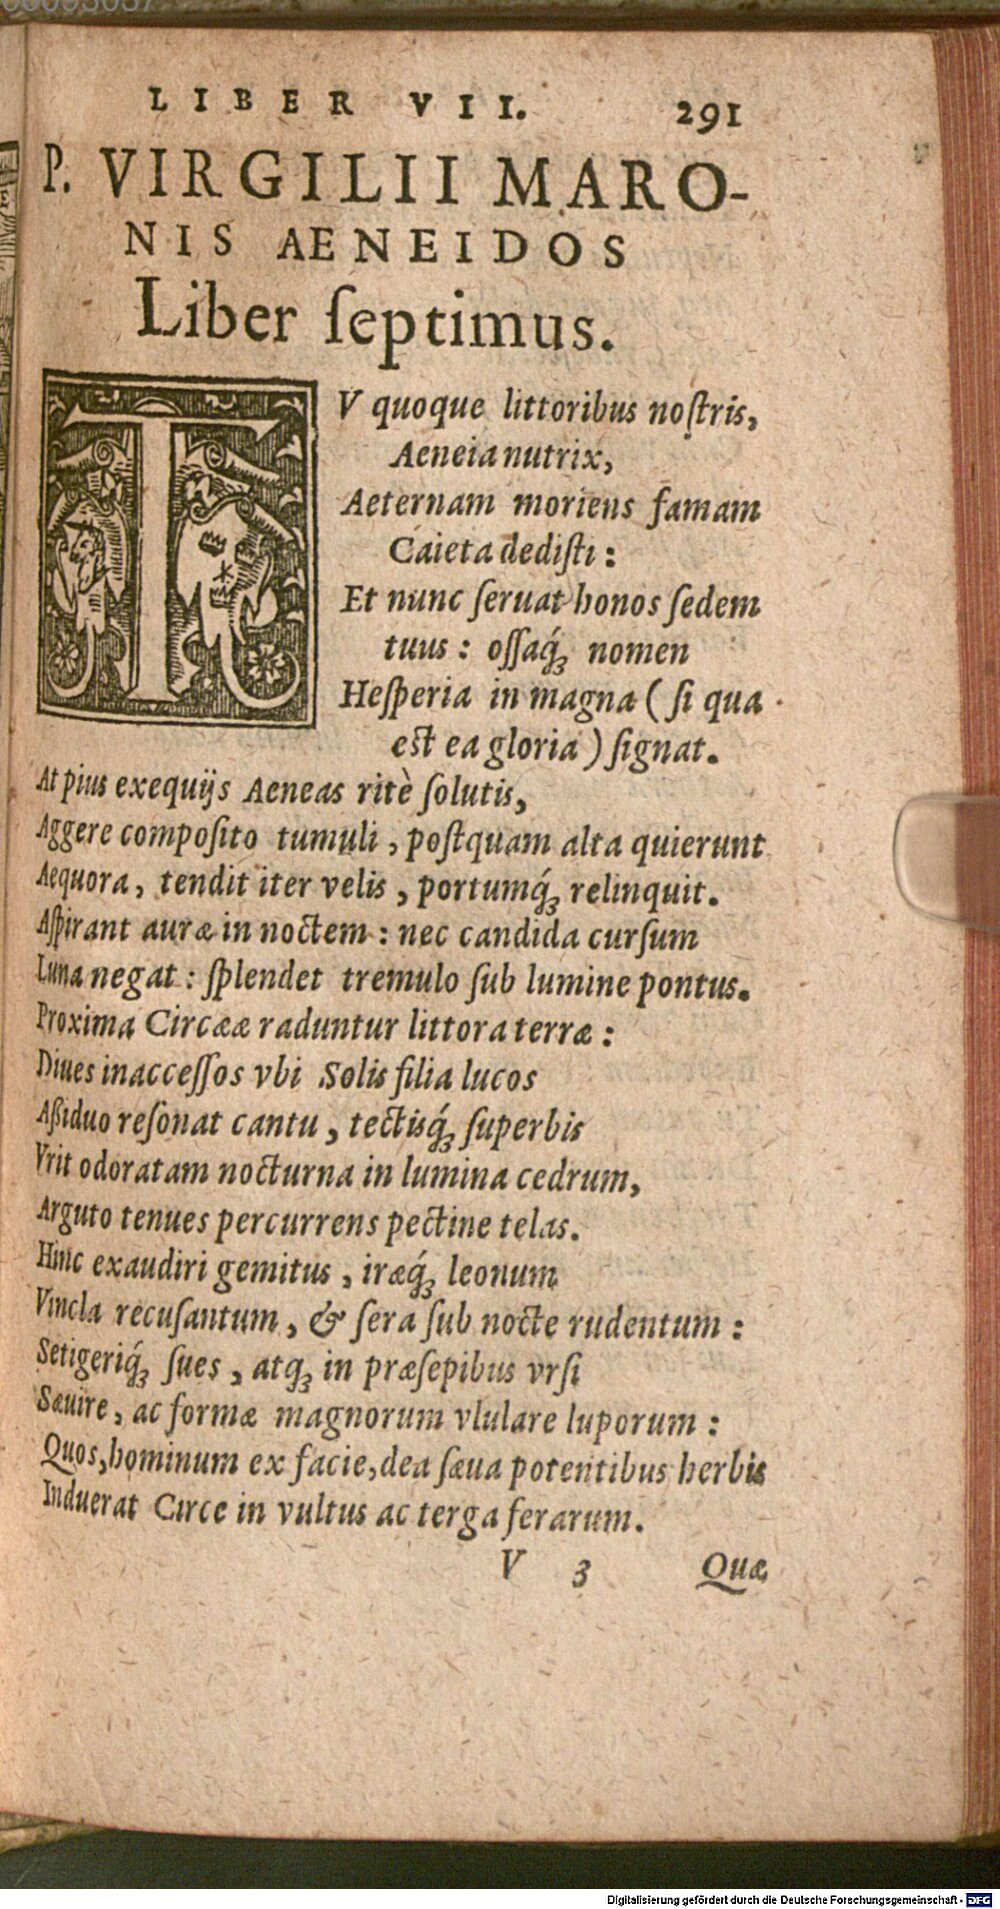 LIBER VII. 291
P. VIRGILII MARO-
NIS AENEIDOS
Liber ſeptimus.
TV quoque littoribus noſtris,
Aeneia nutrix,
Aeternam moriens famam
Caieta dediſti :
Et nunc ſeruat honos ſedem
tuus : oſſaq́ꝫ nomen
Heſperia in magna ( ſi qua
eſt ea gloria ) ſignat.
At pius exequijs Aeneas ritè ſolutis,
Aggere compoſito tumuli , poſtquam alta quierunt
Aequora , tendit iter velis , portumq́ꝫ relinquit.
Aſpirant auræ in noctem : nec candida curſum
Luna negat : ſplendet tremulo ſub lumine pontus.
Proxima Circææ raduntur littora terræ :
Diues inacceſſos vbi Solis filia lucos
Aßiduo reſonat cantu , tectisq́ꝫ ſuperbis
Vrit odoratam nocturna in lumina cedrum,
Arguto tenues percurrens pectine telas.
Hinc exaudiri gemitus , iræq́ꝫ leonum
Vincla recuſantum , & ſera ſub nocte rudentum :
Setigeriq́ꝫ ſues , atqꝫ in præſepibus vrſi
Sæuire , ac formæ magnorum vlulare luporum :
Quos,hominum ex facie,dea ſæua potentibus herbis
Induerat Circe in vultus ac terga ferarum.
V 3 Quæ
Digitalisierung gefördert durch die Deutsche Forschungsgemeinschaft - DFG